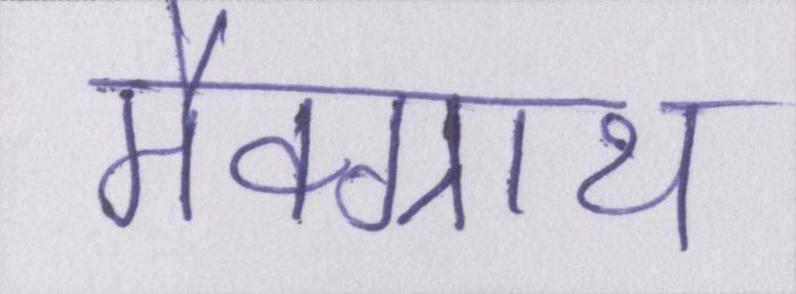 मैक्ग्राथ